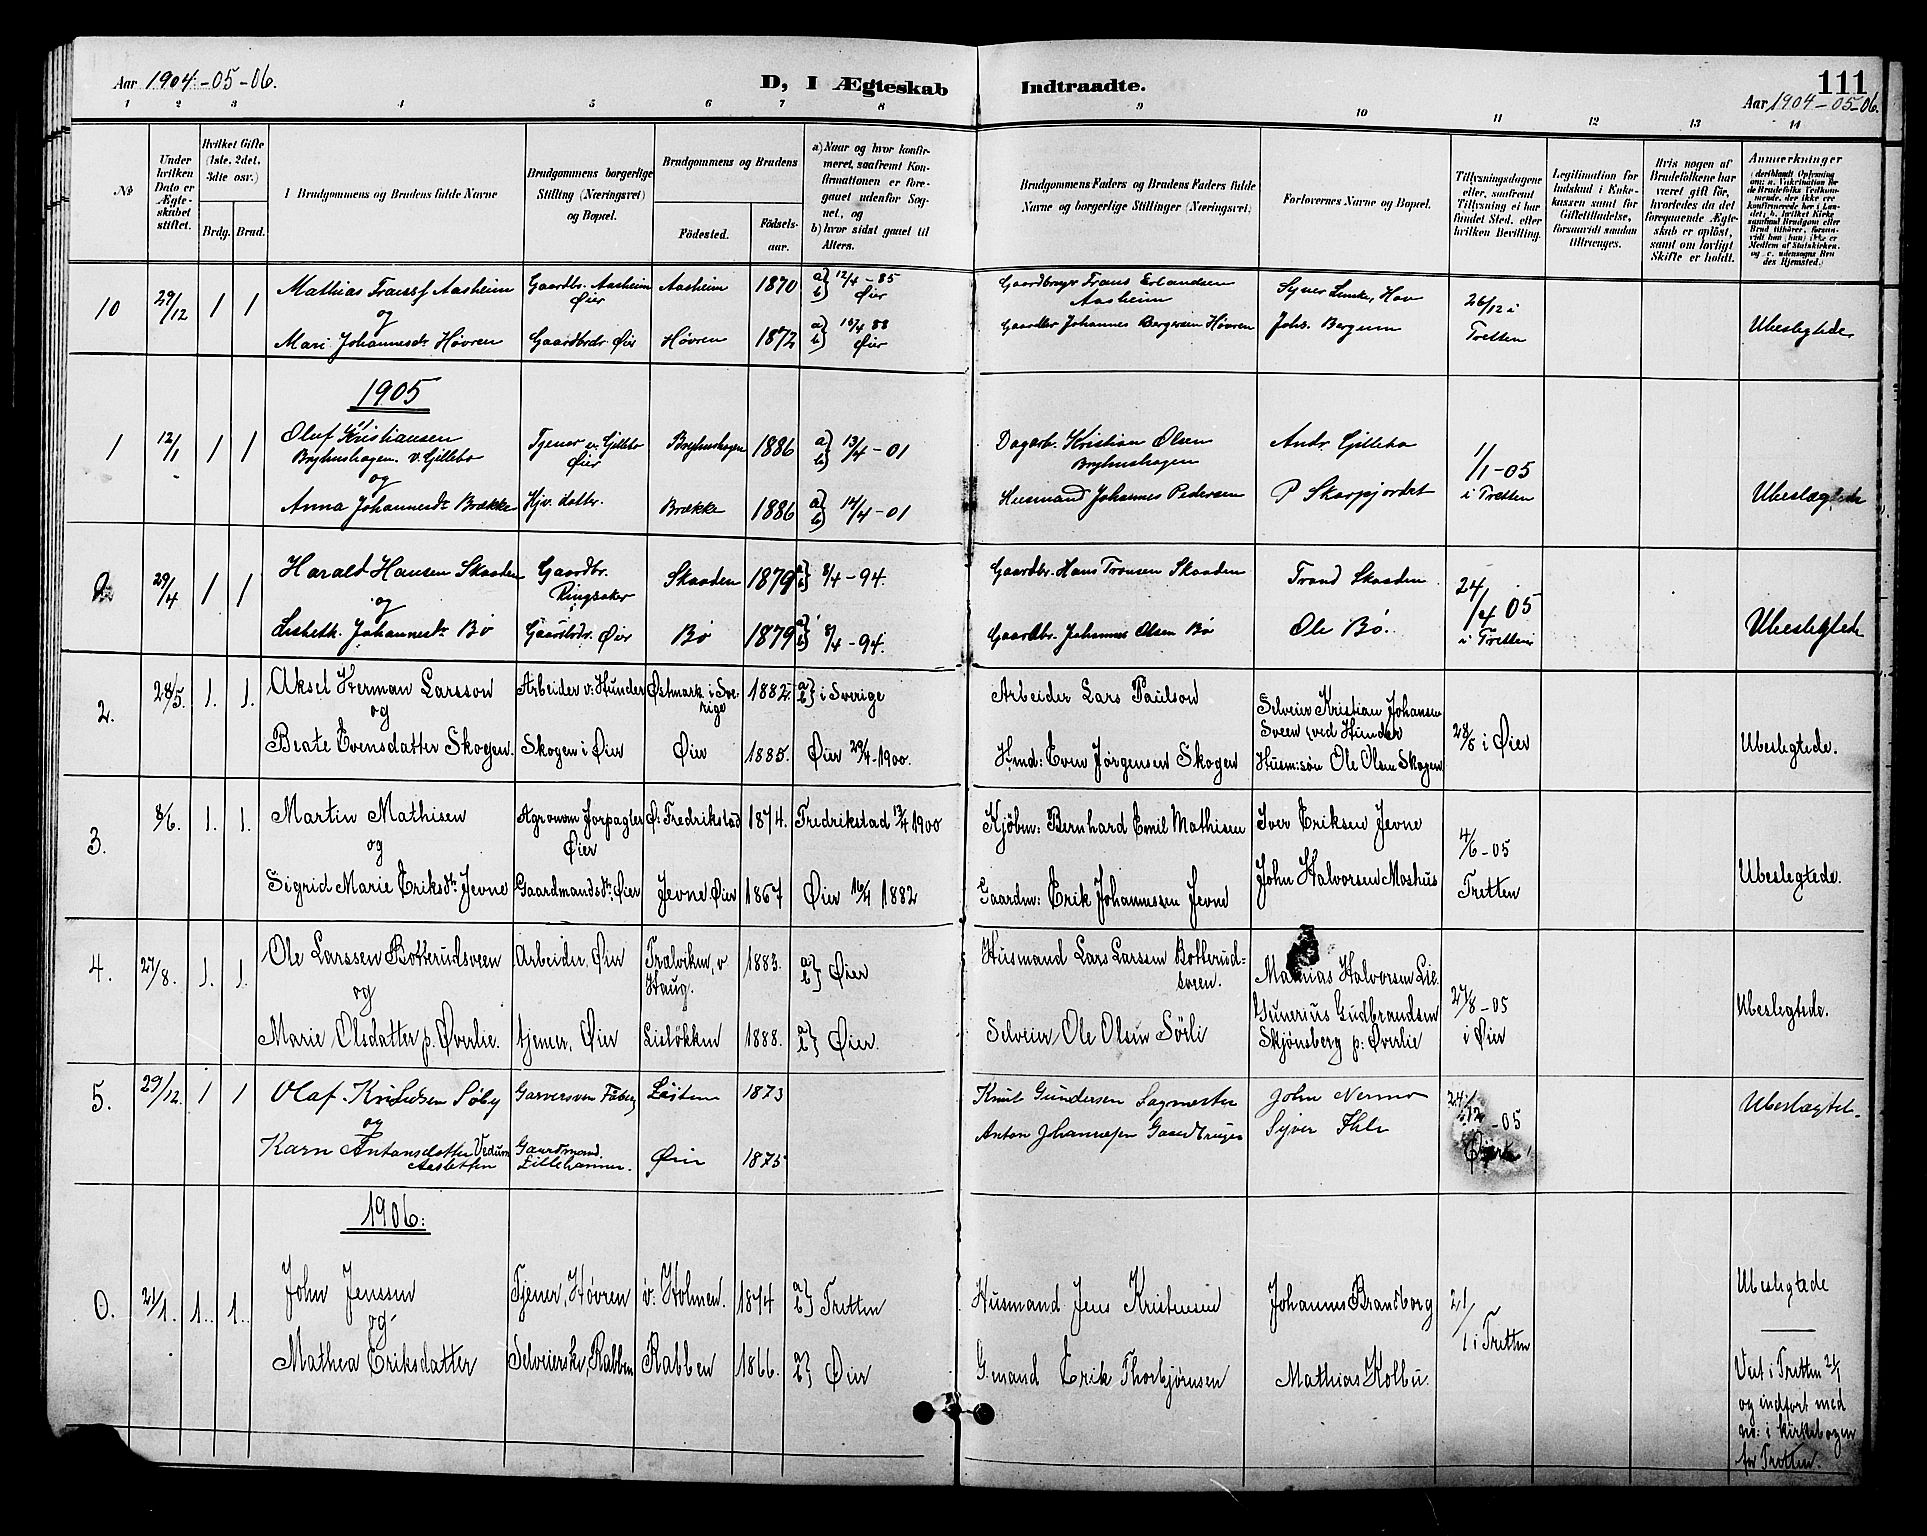 Aar 1904-05-06.
D, I Ægteskab
Indtraadte.
111
Aar 1904-05-06.
1 2 3 4 5 6 7 8 9 10 11 12 13 14
No
Under hvilken Dato er Ægteskabet stiftet.
Hvilket Gifte (1ste, 2det, 3die osv.)
Brdg. Brud.
Brudgommens og Brudens fulde Navne
Brudgommens borgerlige Stilling (Næringsvei) og Bopæl.
Brudgommens og Brudens
Fødested.
Fødselsaar.
a) Naar og hvor konfirmeret, saafremt Konfirmationen er foregaaet udenfor Sognet, og
b) hvor sidst gaaet til Alters.
Brudgommens Faders og Brudens Faders fulde Navne og borgerlige Stillinger (Næringsvei)
Forlovernes Navne og Bopæl.
Tillysningsdagene eller, saafremt Tillysning ei har fundet Sted, efter hvilken Bevilling.
Legitimation for Indskud i Enkekassen samt for Giftetilladelse, forsaavidt saadan tiltrænges.
Hvis nogen af Brudefolkene har været gift før, hvorledes da det foregaaende Ægteskab er opløst, samt om lovligt Skifte er holdt.
Anmerkninger
10 29/12 1 1 Mathias Fransf Aasheim Gaardbr. Aasheim Øier Aasheim 1870 a) b) 12/4-85 Øier Gaardbruger Frans Erlandsen Aasheim Syver Linke, Hov 26/12 i Tretten Ubeslegtede.
og
Mari Johannesdt Høvren Gaardbrdr Øier Høvren 1872 a) b) 15/4 88 Øier Gaardbr Johannes Bergersen Høvren Johs. Bergum
1905
1 12/1 1 1 Oluf Kristiansen Bryhnshagen v. Gillebo Tjener v. Gillebo Øier Bryhnshagen 1886 a) b) 13/4-01 Dagarb. Kristian Olsen Bryhnshagen Andr. Gillebo 1/1-05 i Tretten Ubeslægtede
og
Anna Johannesdt Brække Hjv. datter. Brække 1886 a) b) 14/4-01 Husmand Johannes Pedersen P Skarpjordet
29/4 1 1 Harald Hansen Skaaden Gaardbr. Ringsaker Skaaden 1879 8/4-94. Gaardbr. Hans Tronsen Skaaden Trond Skaaden 24/4 05 i Tretten Ubeslegtede
og
Lisbeth Johannesdt Bø Gaardbdr. Øier Bø 1879 8/4-94. Gaardbr. Johannes Olsen Bø Ole Bø.
2. 28/5. 1. 1. Aksel Herman Larsson Arbeider v: Hunder Østmark i Sverige 1882. a) b) i Sverige Arbeider Lars Paulson Selveier Kristian Johansen Sveen, ved Hunder 28/5 i Øier Ubeslegtede.
og
Beate Evensdatter Skogen. Skogen i Øier Øier 1885. Øier 29/4-1900. Hmd: Even Jørgensen Skogen Husm: søn Ole Olsen Skogen
3. 8/6. 1. 1. Martin Mathisen Agronom Forpagter Øier Ø: Fredrikstad 1874. Fredrikstad 13/4 1900 Kjøbm: Bernhard Emil Mathisen Iver Eriksen Jevne 4/6-05 Tretten Ubeslegtede.
og
Sigrid Marie Eriksdt. Jevne Gaardmandsdt. Øier Jevne Øier 1867 Øier 16/4 1882 Gaardm: Erik Johannessen Jevne John Halvorsen Moshus
4. 27/8. 1. 1. Ole Larssen Botterudsveen Arbeider, Øier Trælviken, v Haug. 1883. a) b) Øier Husmand Lars Larssen Botterudsveen. Mathias Halvorsen Lie 27/8-05 i Øier Ubeslegtede.
og
Marie Olsdatter p. Øverlie. tjener, Øier Lisløkken 1888. a) b) Øier. Selveier Ole Olsen Sørli Gunerius Gudbrandsen Skjønsberg p: Øverlie
5. 29/12. 1 1 Olaf Knudsen Søby Garversven Faaberg Løiten 1873 Knut Gundersen Sagmester John Nermo 24/12-05 Ubeslægtet.
og
Karn Antonsdatter Vedum Aasletten Gaardmand. Lillehammer. Øier 1875 Anton Johannesen Gaardbruger Syver Ihle
1906:
0. 21/1. 1. 1. John Jenssen Tjener, Høvren v: Holmen. 1874 a) b) Tretten Husmand Jens Kristensen Johannes Brandborg 21/1 i Tretten Ubeslegtede
og
Mathea Eriksdatter Selveierske, Rabben Rabben 1866. a) b) Øier G.mand Erik Thorbjørnsen Mathias Kolbu.
Viet i Tretten 21/1
og indført med
no: i kirkebogen
for Tretten.